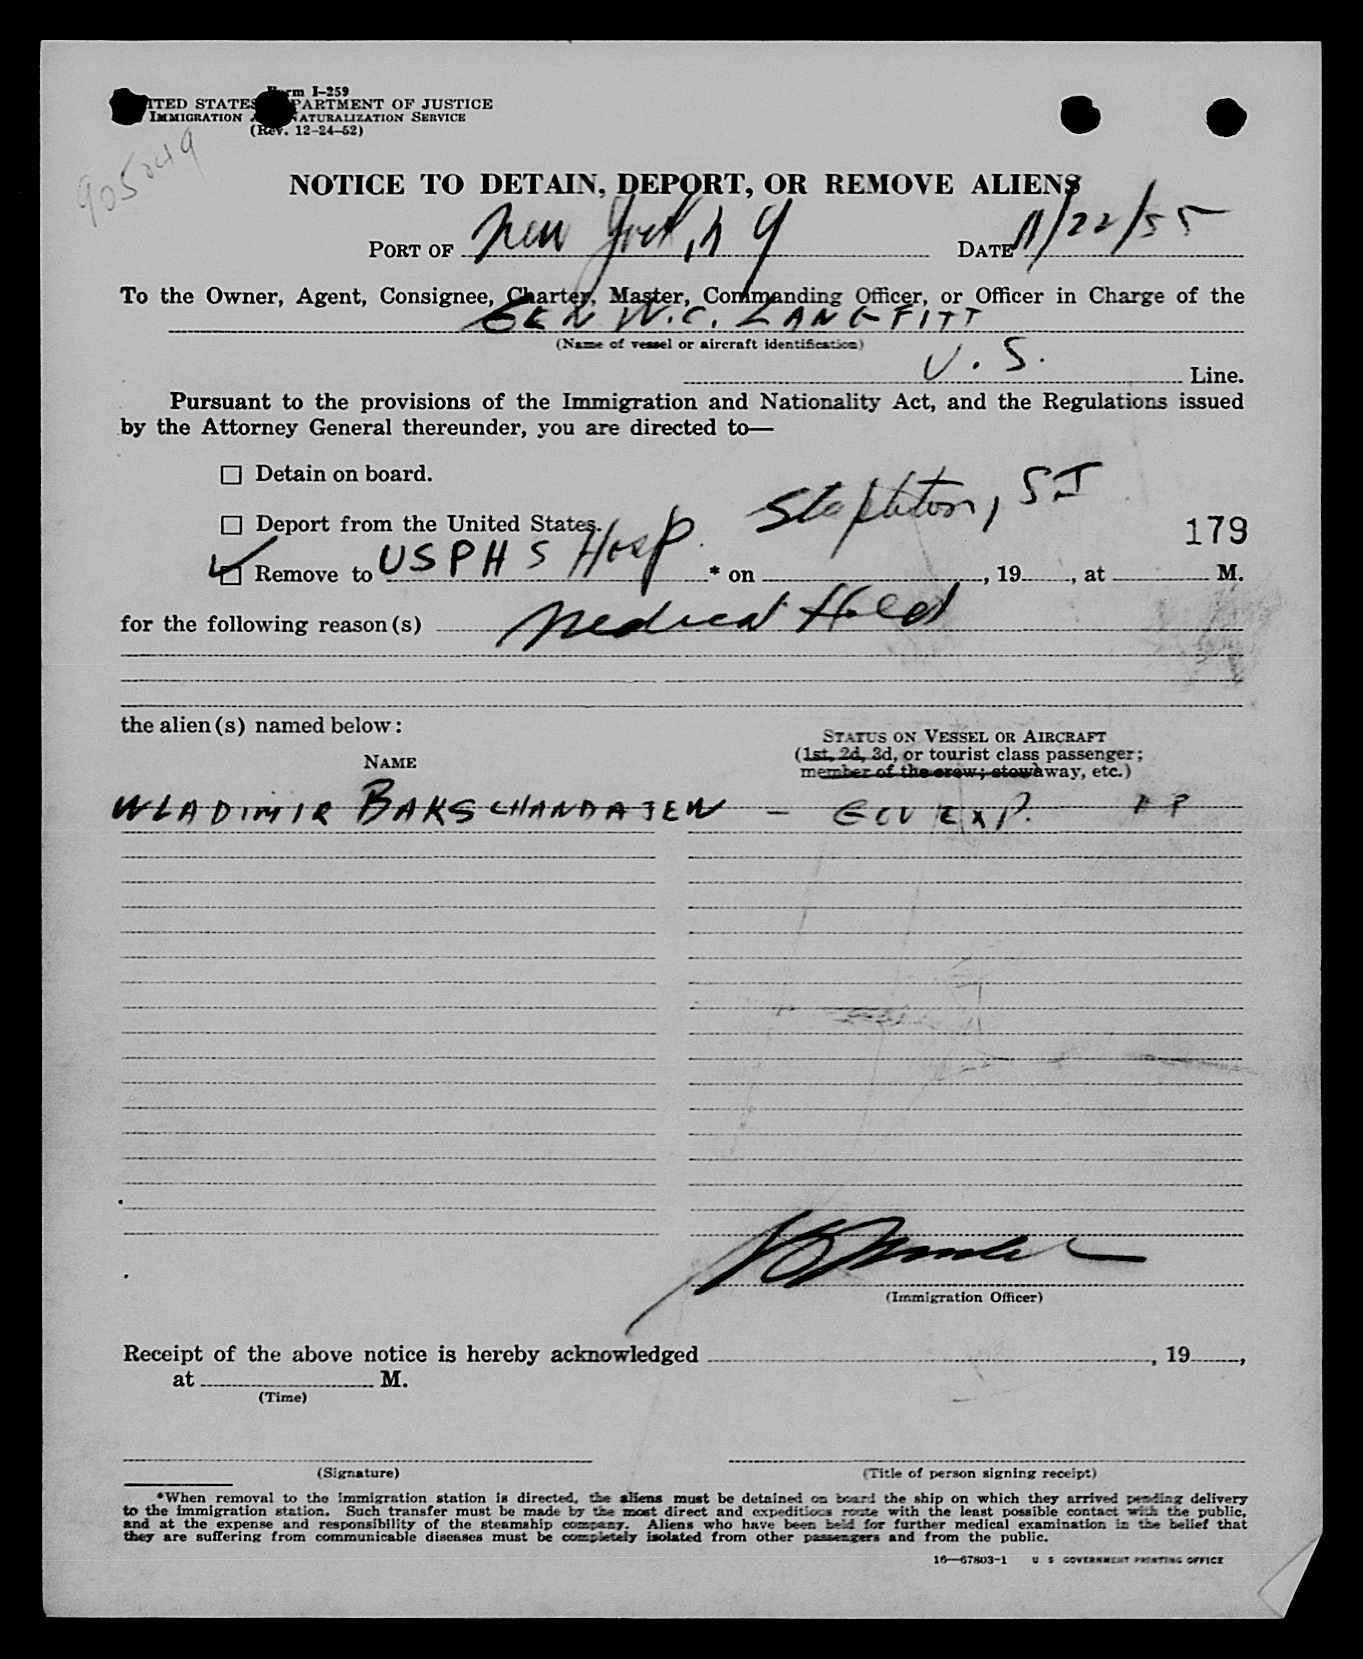 Form I-259
UNITED STATES DEPARTMENT OF JUSTICE
IMMIGRATION AND NATURALIZATION SERVICE
(Rev. 12-24-52)
905049
NOTICE TO DETAIN, DEPORT, OR REMOVE ALIENS
PORT OF New York, N Y DATE 11/22/55
To the Owner, Agent, Consignee, Charter, Master, Commanding Officer, or Officer in Charge of the
GEN W.C. LANGFITT
(Name of vessel or aircraft identification)
U.S. Line.
Pursuant to the provisions of the Immigration and Nationality Act, and the Regulations issued
by the Attorney General thereunder, you are directed to—
☐ Detain on board.
Stapleton, SI
☐ Deport from the United States.
179
☑ Remove to USPHS Hosp. * on , 19 , at M.
for the following reason(s) Medical Hold
the alien(s) named below:
STATUS ON VESSEL OR AIRCRAFT
NAME (1st, 2d, 3d, or tourist class passenger;
member of the crew; stowaway, etc.)
WLADIMIR BAKSCHANDAJEW -
(Immigration Officer)
Receipt of the above notice is hereby acknowledged , 19 ,
at M.
(Time)
(Signature) (Title of person signing receipt)
*When removal to the immigration station is directed, the aliens must be detained on board the ship on which they arrived pending delivery
to the immigration station. Such transfer must be made by the most direct and expeditious route with the least possible contact with the public,
and at the expense and responsibility of the steamship company. Aliens who have been held for further medical examination in the belief that
they are suffering from communicable diseases must be completely isolated from other passengers and from the public.
16—67803-1 U S GOVERNMENT PRINTING OFFICE